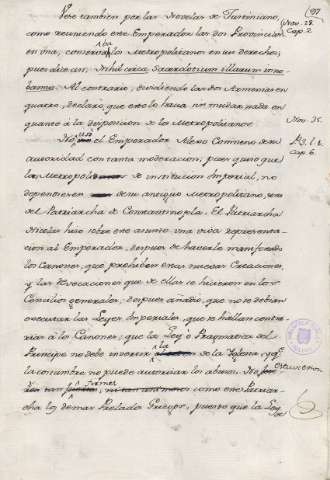 (97
Vese tambien por las Novelas de Justiniano,
como reuniendo este Emperador las dos Provincias
Nov. 28.
Cap. 2
en una, conserva à los Metropolitanos en sus derechos,
pues dice asi: Nihil circa Sacerdotium illarum inno-
bamus. Al contrario, dividiendo las dos Armenias en
quatro, declaró, que esto lo hacia no mudar nada en
quanto à la disposicion de los Metropolitanos.
Nov. 31.
No usó el Emperador Alexo Comneno de su
autoridad con tanta moderacion, pues quiso que
Cap. 6.
las Metropolis de institucion Imperial, no
dependiesen de su antiguo Metropolitano, sino
del Patriarcha de Constantinopla. El Patriarcha
Nicolas hizo sobre este asunto una viva representa-
cion al Emperador, despues de haverle manifestado
los Canones, que prohiben estas nuevas Creaciones,
y las Revocaciones que de ellas se hicieron en los
Concilios generales; despues añadió, que no se debian
executar las Leyes Imperiales, que se hallan contra-
rias à los Canones; que la Ley ò Pragmatica del
Principe no debe invertir la de la Iglesia y qe.
la costumbre no puede autorizar los abusos. No
estuvieron
firmes como este Patriar-
cha los demas Prelados Griegos, puesto que la Ley
de